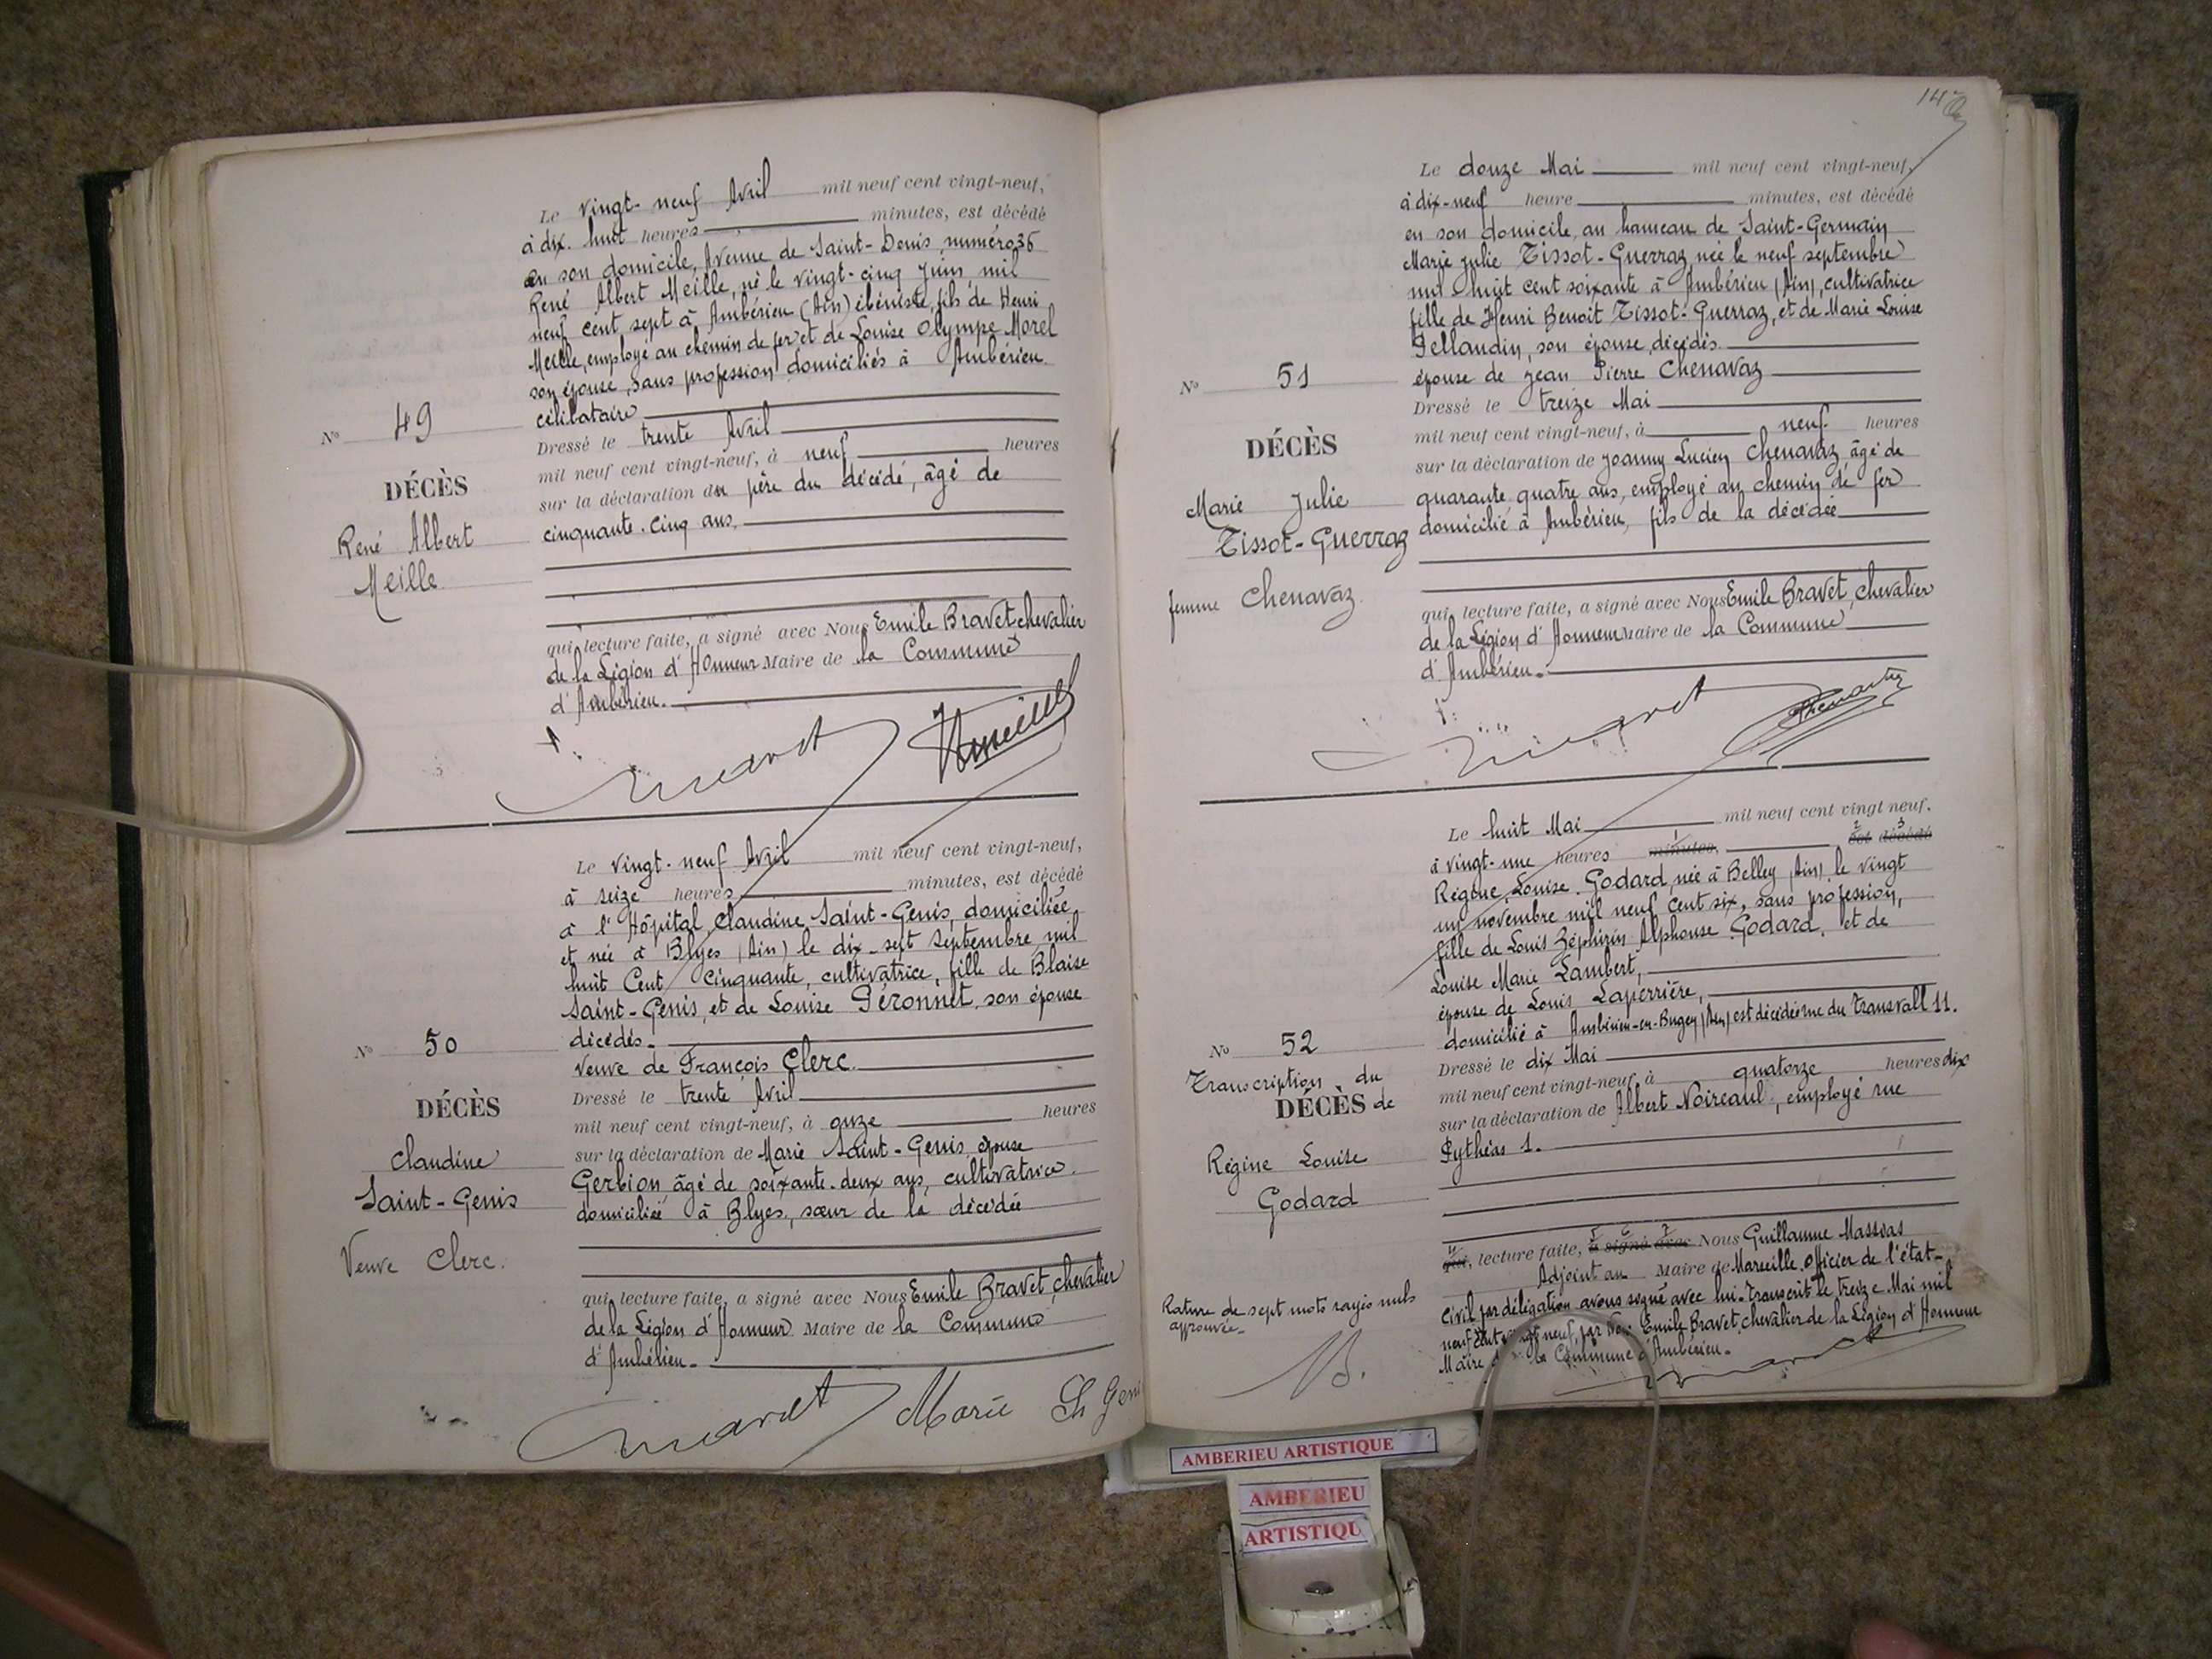 Le vingt-neuf Avril mil neuf cent vingt-neuf,
à dix-huit heures minutes, est décédé
en son domicile, Avenue de Saint-Denis, numéro 36
René Albert Meille, né le vingt-cinq Juin mil
neuf cent sept à Ambérieu (Ain) ébéniste, fils de Henri
Meille, employé au chemin de fer et de Louise Olympe Morel
son épouse, sans profession domiciliés à Ambérieu.
célibataire
Dressé le trente Avril
mil neuf cent vingt-neuf, à neuf heures
sur la déclaration du père du décédé, âgé de
cinquante-cinq ans,
qui, lecture faite, a signé avec Nous Emile Bravet chevalier
de la Légion d'Honneur Maire de la Commune
d'Ambérieu.
No 49
DÉCÈS
René Albert
Meille
Le vingt-neuf Avril mil neuf cent vingt-neuf,
à seize heures minutes, est décédé
à l'Hôpital, Claudine Saint-Genis, domiciliée
et née à Blyes (Ain) le dix-sept Septembre mil
huit Cent Cinquante, cultivatrice, fille de Blaise
Saint-Genis, et de Louise Péronnet, son épouse
décédés.
Veuve de François Clerc.
Dressé le trente Avril
mil neuf cent vingt-neuf, à onze heures
sur la déclaration de Marie Saint-Genis, épouse
Gerbion âgé de soixante-deux ans, cultivatrice
domiciliée à Blyes, sœur de la décédée
qui, lecture faite, a signé avec Nous Emile Bravet, chevalier
de la Légion d'Honneur Maire de la Commune
d'Ambérieu.
No 50
DÉCÈS
Claudine
Saint-Genis
Veuve Clerc.
Marie St Geni
14
Le douze Mai mil neuf cent vingt-neuf,
à dix-neuf heure minutes, est décédé
en son domicile, au hameau de Saint-Germain
Marie Julie Tissot-Guerraz née le neuf septembre
mil huit cent soixante à Ambérieu (Ain), cultivatrice
fille de Henri Benoit Tissot-Guerraz, et de Marie Louise
Pellaudin, son épouse, décédés.
épouse de Jean Pierre Chenavaz
Dressé le treize Mai
mil neuf cent vingt-neuf, à neuf heures
sur la déclaration de Joanny Lucien Chenavaz âgé de
quarante quatre ans, employé au chemin de fer
domicilié à Ambérieu, fils de la décédée
qui, lecture faite, a signé avec Nous Emile Bravet, chevalier
de la Légion d'Honneur Maire de la Commune
d'Ambérieu.
No 51
DÉCÈS
Marie Julie
Tissot-Guerraz
femme Chenavaz.
Le huit Mai mil neuf cent vingt neuf,
à vingt-une heures minutes, est décédé
1 2 3
Régine, Louise Godard, née à Belley (Ain), le vingt
un novembre mil neuf cent six, sans profession,
fille de Louis Zéphirin Alphonse Godard, et de
Louise Marie Lambert,
épouse de Louis Laperrière,
domicilié à Ambérieu-en-Bugey (Ain) est décédée rue du Transvall 11.
Dressé le dix Mai
mil neuf cent vingt-neuf, à quatorze heures dix
sur la déclaration de Albert Noireaul, employé rue
Pythéas 1.
4 5 6 7
qui, lecture faite, a signé avec Nous Guillaume Massvas
Adjoint au Maire de Marseille, officier de l'état-
Civil par délégation avons signé avec lui. Transcrit le treize Mai mil
neuf cent vingt neuf, par Nous Emile Bravet, chevalier de la Légion d'Honneur
Maire de la Commune d'Ambérieu.
No 52
Transcription du
DÉCÈS de
Régine Louise
Godard
Rature de sept mots rayés nuls
approuvée
B.
AMBERIEU ARTISTIQUE
AMBERIEU
ARTISTIQU